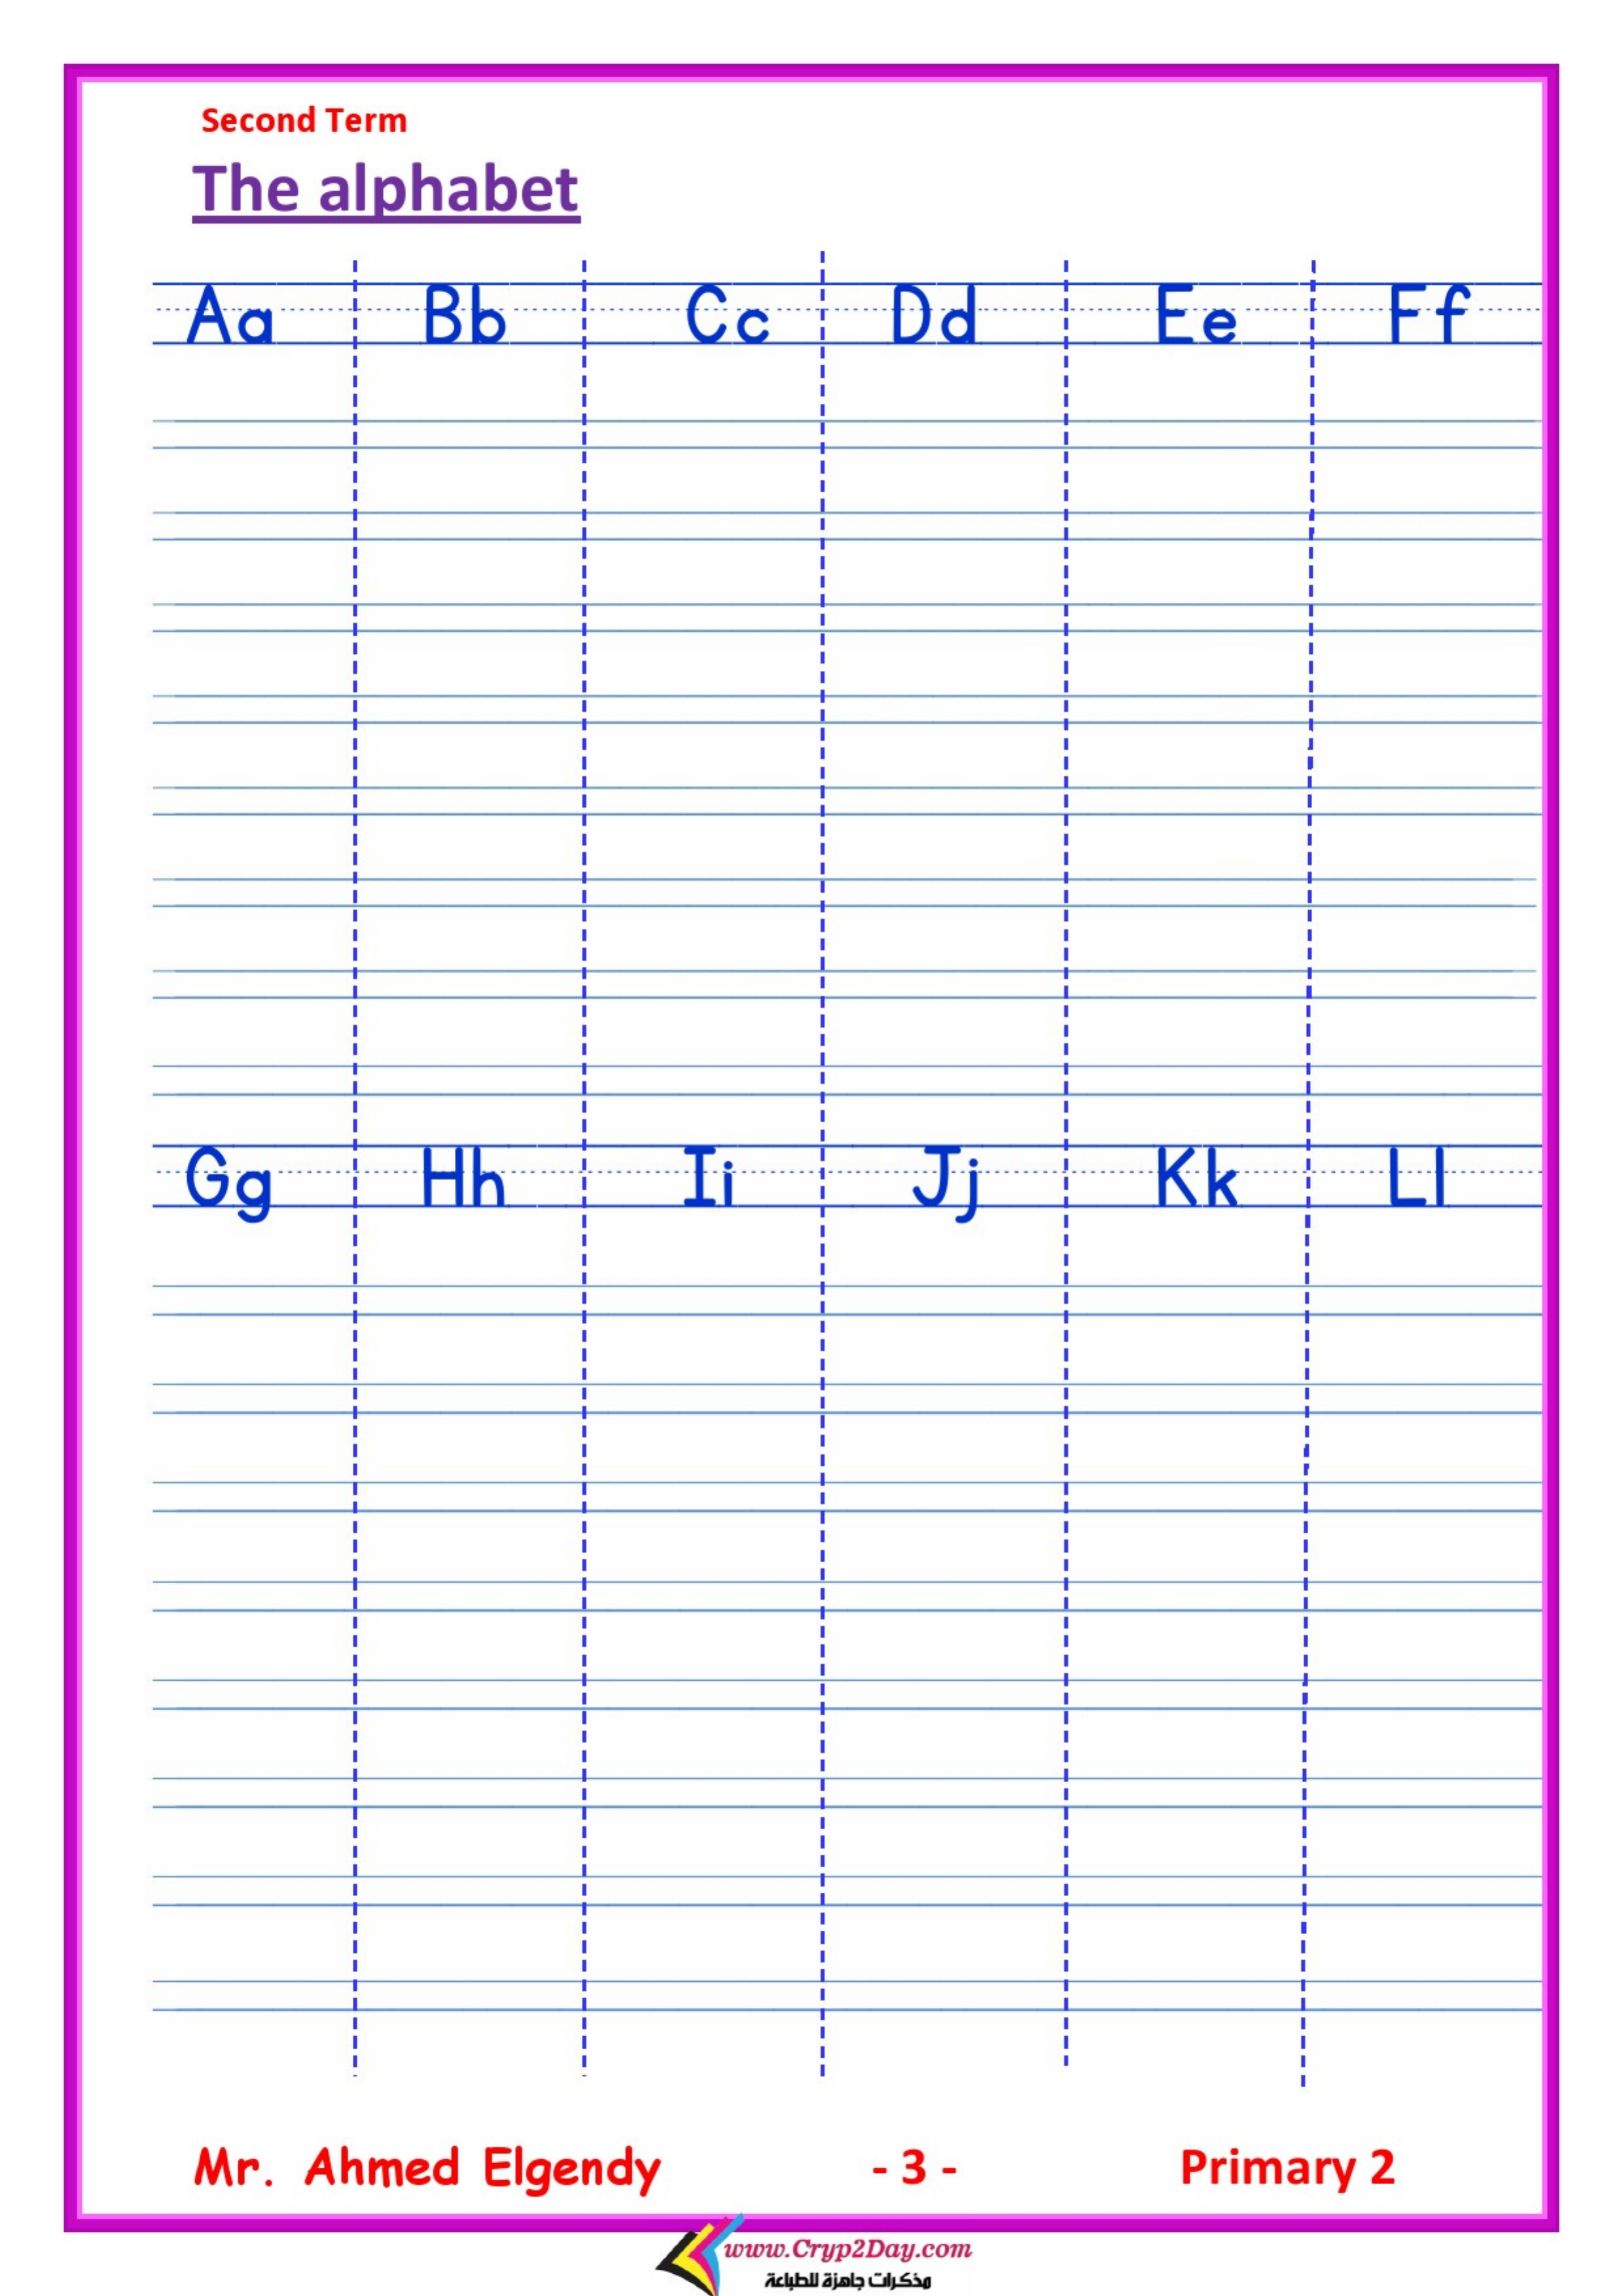 Second Term
The alphabet
Aa Bb Cc Dd Ee Ff
Gg Hh Ii Jj Kk Ll
Mr. Ahmed Elgendy - 3 - Primary 2
www.Cryp2Day.com
مذكرات جاهزة للطباعة